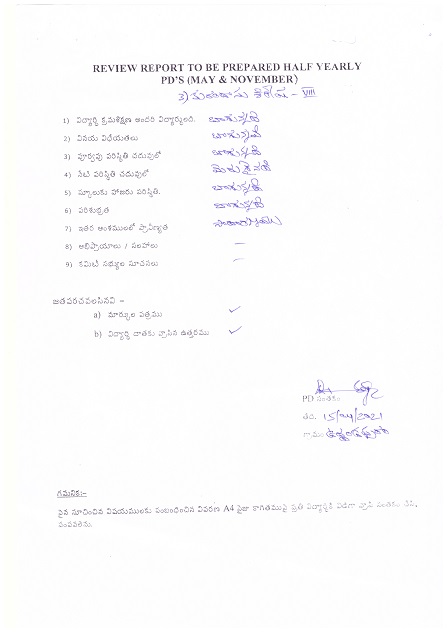 REVIEW REPORT TO BE PREPARED HALF YEARLY
PD'S (MAY & NOVEMBER)
3) - VIII
1) విద్యార్థి క్రమశిక్షణ అందరి విద్యార్థులది. బాగున్నది
2) వినయ విధేయతలు బాగున్నవి
3) పూర్వపు పరిస్థితి చదువులో బాగున్నది
4) నేటి పరిస్థితి చదువులో మెరుగైనది
5) స్కూలుకు హాజరు పరిస్థితి. బాగున్నది
6) పరిశుభ్రత బాగున్నది
7) ఇతర అంశములలో ప్రావీణ్యత
8) అభిప్రాయాలు / సలహాలు —
9) కమిటి సభ్యుల సూచనలు —
జతపరచవలసినవి –
a) మార్కుల పత్రము ✓
b) విద్యార్థి దాతకు వ్రాసిన ఉత్తరము ✓
PD సంతకం
తేది. 15/04/2021
గ్రామం
గమనిక:–
పైన సూచించిన విషయములకు సంబంధించిన వివరణ A4 సైజు కాగితముపై ప్రతీ విద్యార్థికి విడిగా వ్రాసి సంతకం చేసి,
పంపవలెను.